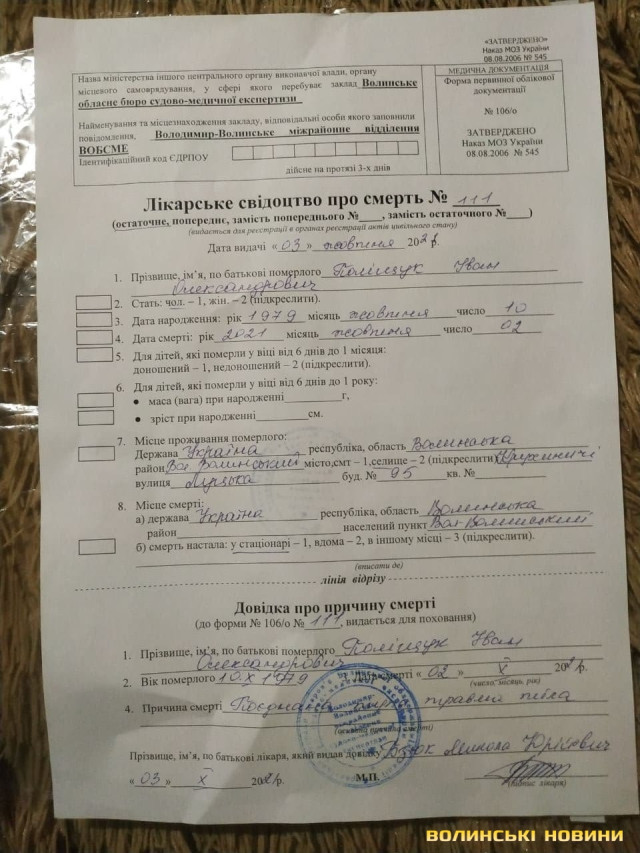 «ЗАТВЕРДЖЕНО»
Наказ МОЗ України
08.08.2006 № 545
Назва міністерства іншого центрального органу виконавчої влади, органу
місцевого самоврядування, у сфері якого перебуває заклад Волинське
обласне бюро судово-медичної експертизи
Найменування та місцезнаходження закладу, відповідальні особи якого заповнили
повідомлення, Володимир-Волинське міжрайонне відділення
ВОБСМЕ
Ідентифікаційний код ЄДРПОУ
дійсне на протязі 3-х днів
МЕДИЧНА ДОКУМЕНТАЦІЯ
Форма первинної облікової
документації
№ 106/о
ЗАТВЕРДЖЕНО
Наказ МОЗ України
08.08.2006 № 545
Лікарське свідоцтво про смерть № 111
(остаточне, попереднє, замість попереднього №____, замість остаточного №____)
(видається для реєстрації в органах реєстрації актів цивільного стану)
Дата видачі «03» жовтня 2021р.
1. Прізвище, ім’я, по батькові померлого Поліщук Іван
Олександрович
2. Стать: чол. – 1, жін. – 2 (підкреслити).
3. Дата народження: рік 1979 місяць жовтня число 10
4. Дата смерті: рік 2021 місяць жовтня число 02
5. Для дітей, які померли у віці від 6 днів до 1 місяця:
доношений – 1, недоношений – 2 (підкреслити).
6. Для дітей, які померли у віці від 6 днів до 1 року:
● маса (вага) при народженні____________г,
● зріст при народженні____________см.
7. Місце проживання померлого:
Держава Україна республіка, область Волинська
район Вол. Волинський місто,смт – 1,селище – 2 (підкреслити)
вулиця Луцька буд. № 95 кв. №
8. Місце смерті:
а) держава Україна республіка, область Волинська
район населений пункт Вол Волинський
б) смерть настала: у стаціонарі – 1, вдома – 2, в іншому місці – 3 (підкреслити).
(вписати де)
лінія відрізу
Довідка про причину смерті
(до форми № 106/о № 111, видається для поховання)
1. Прізвище, ім’я, по батькові померлого Поліщук Іван
Олександрович
2. Вік померлого 10.X 1979 смерті «02» X 2021р.
(число, місяць, рік)
4. Причина смерті травма тіла
Прізвище, ім’я, по батькові лікаря, який видав довідку Микола Юрійович
«03» X 2021р. М.П.
(підпис лікаря)
ВОЛИНСЬКІ НОВИНИ